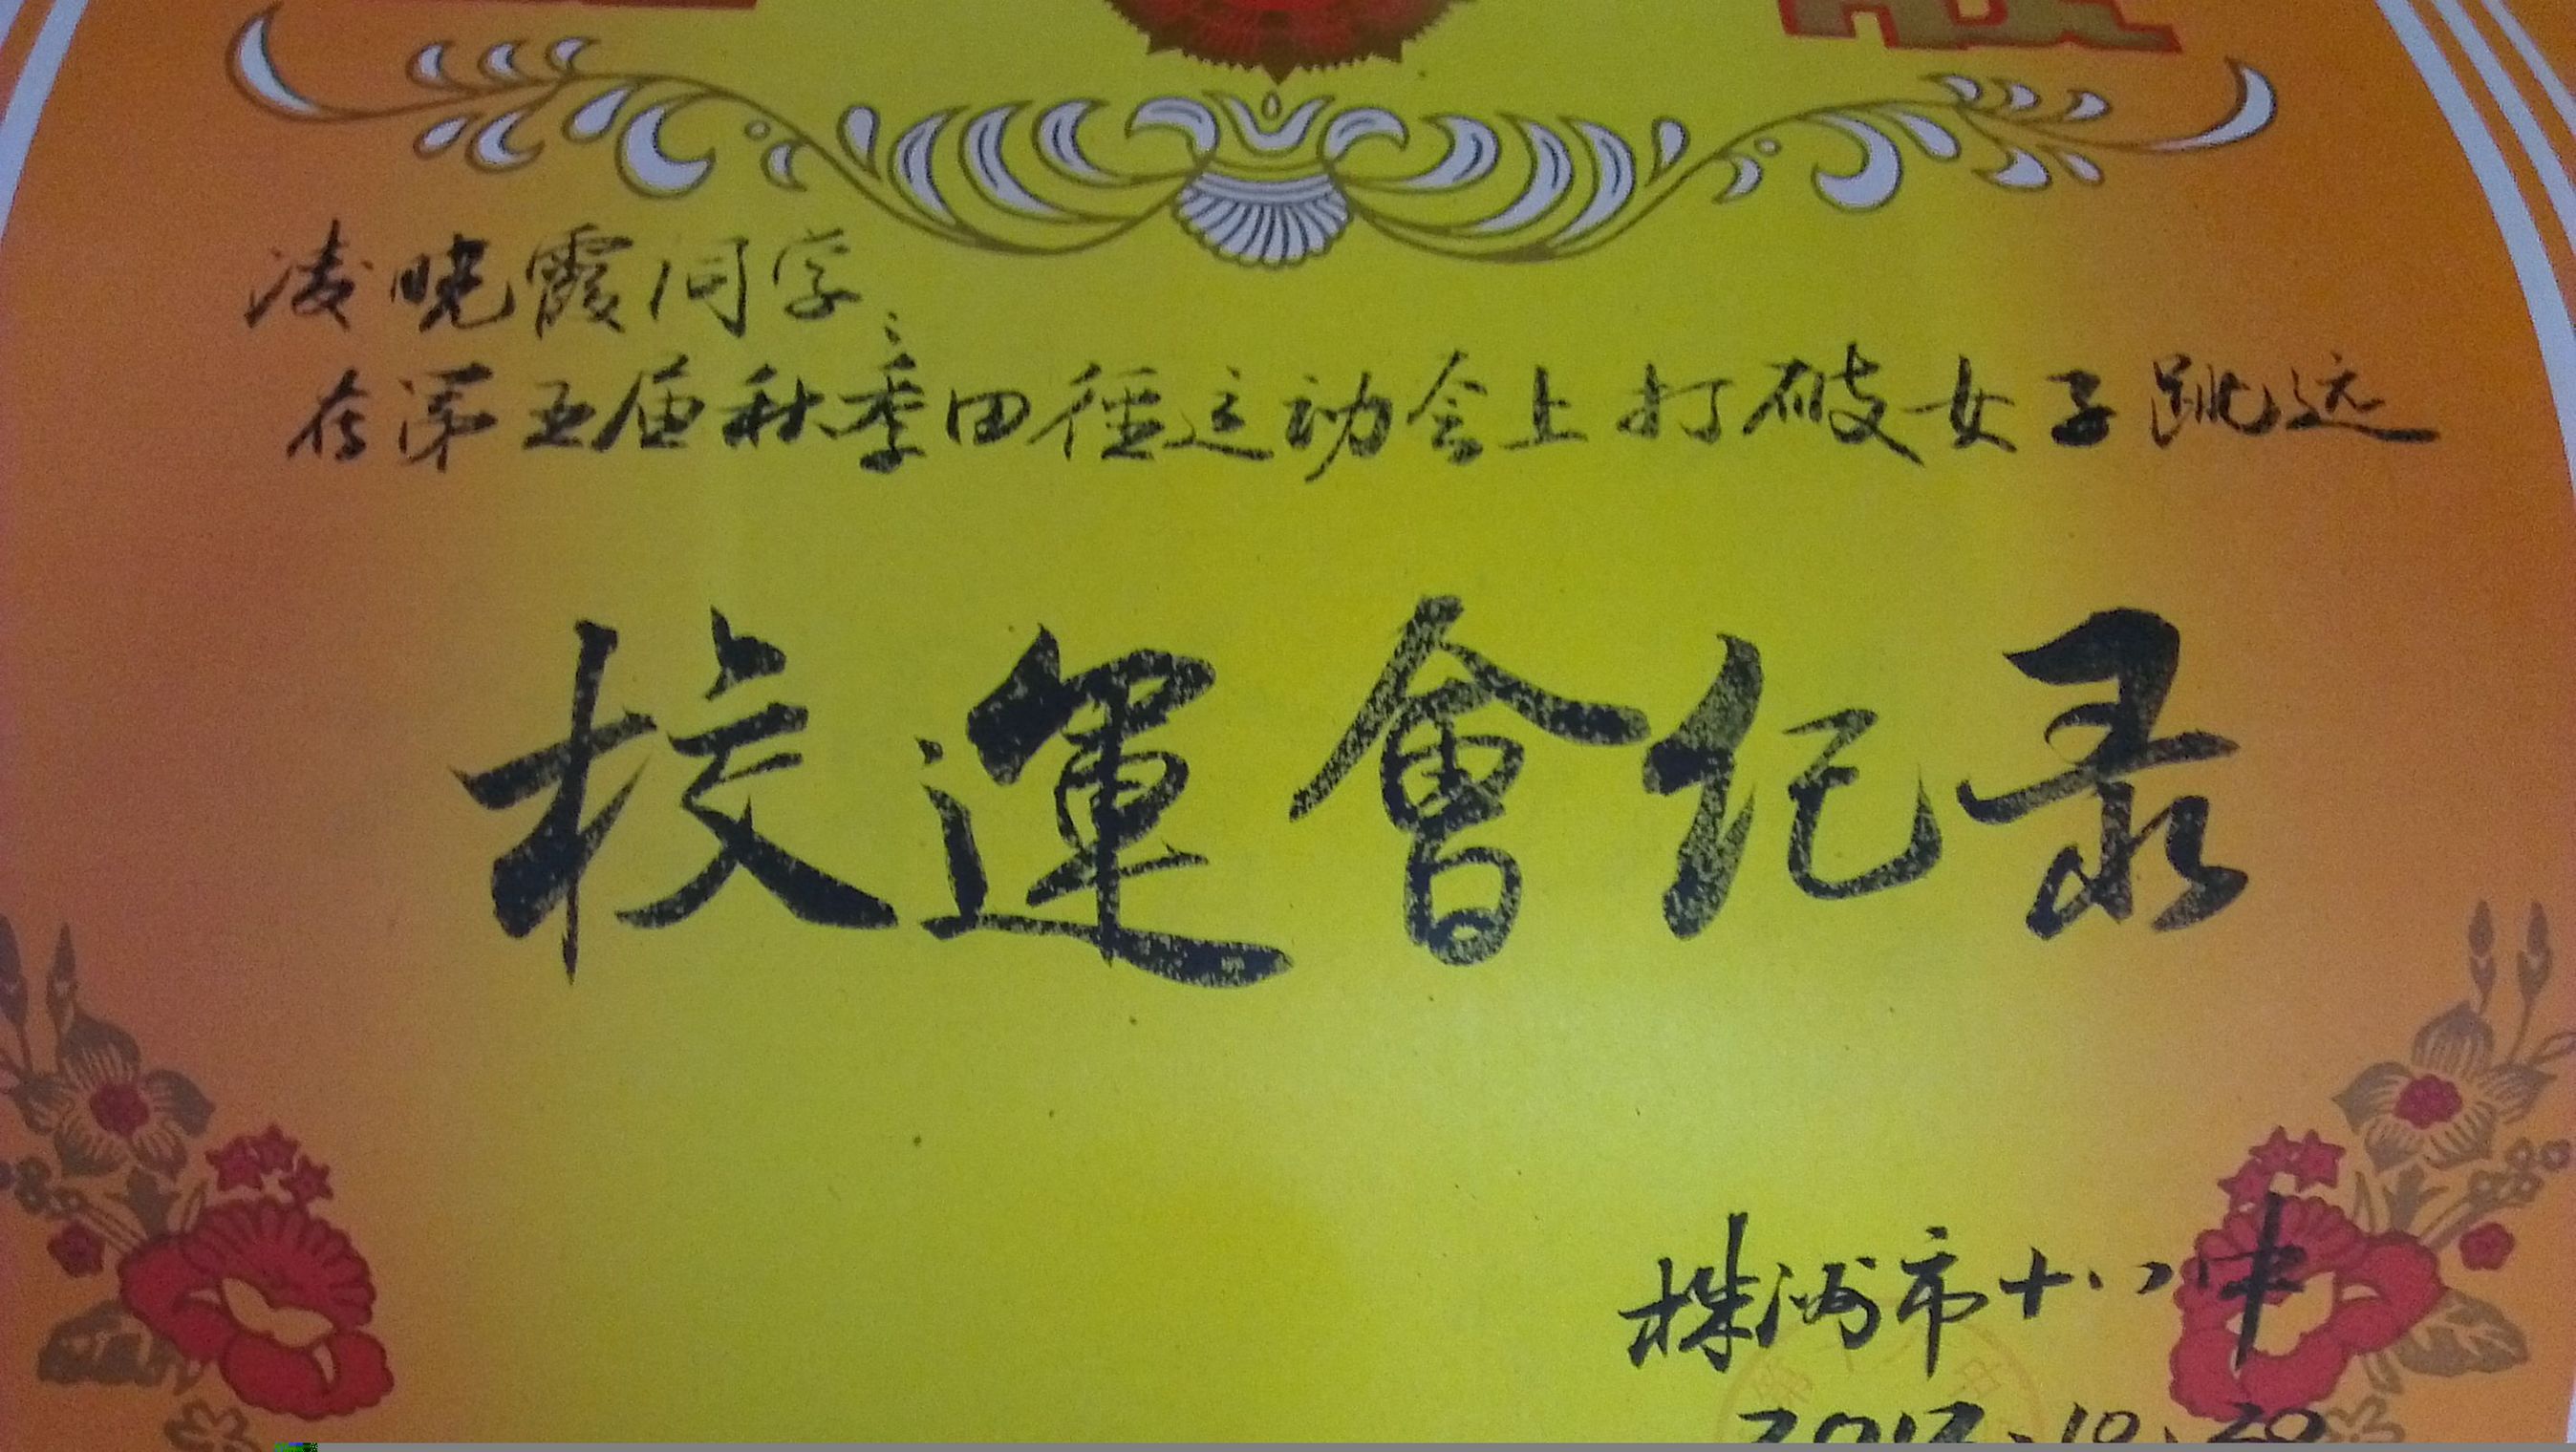 凌晓霞同学:
在第五届秋季田径运动会上打破女子跳远
校運會纪录
株洲市十八中